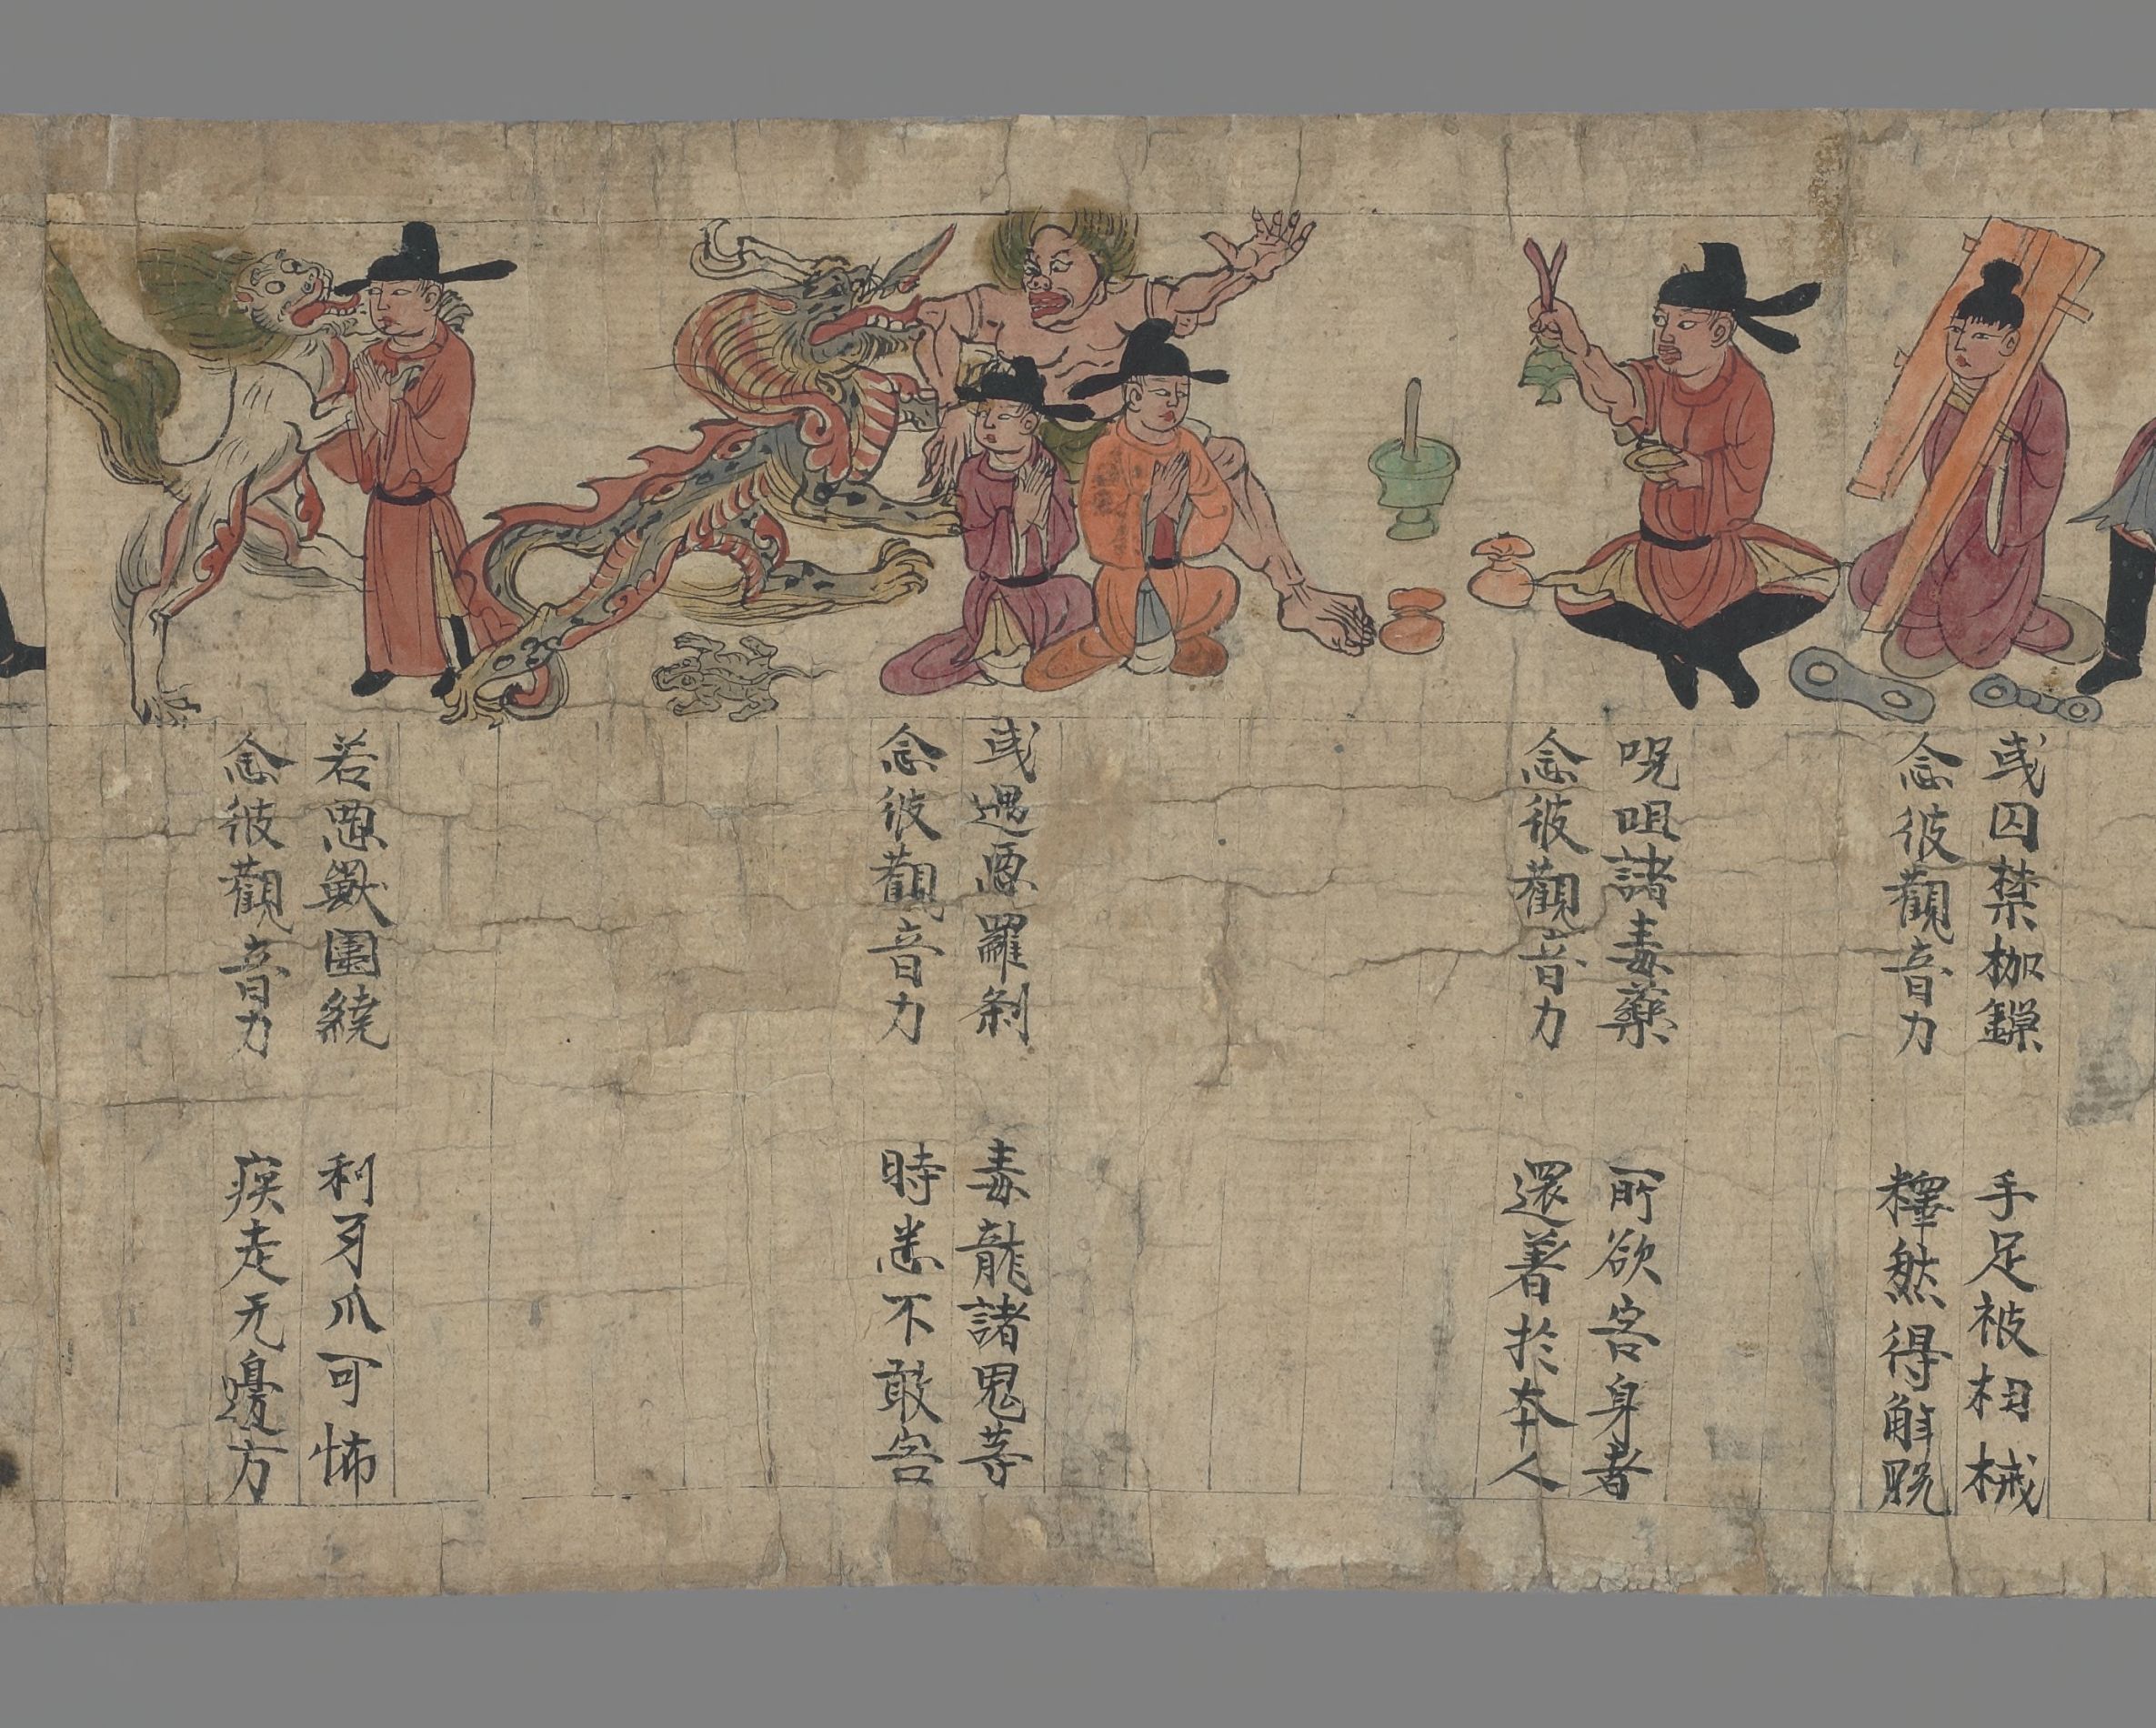 或囚禁枷鏁 手足被杻械
念彼觀音力 釋然得解脫
呪咀諸毒藥 所欲害身者
念彼觀音力 還著於本人
或遇惡羅剎 毒龍諸鬼等
念彼觀音力 時悉不敢害
若惡獸圍繞 利牙爪可怖
念彼觀音力 疾走无邊方